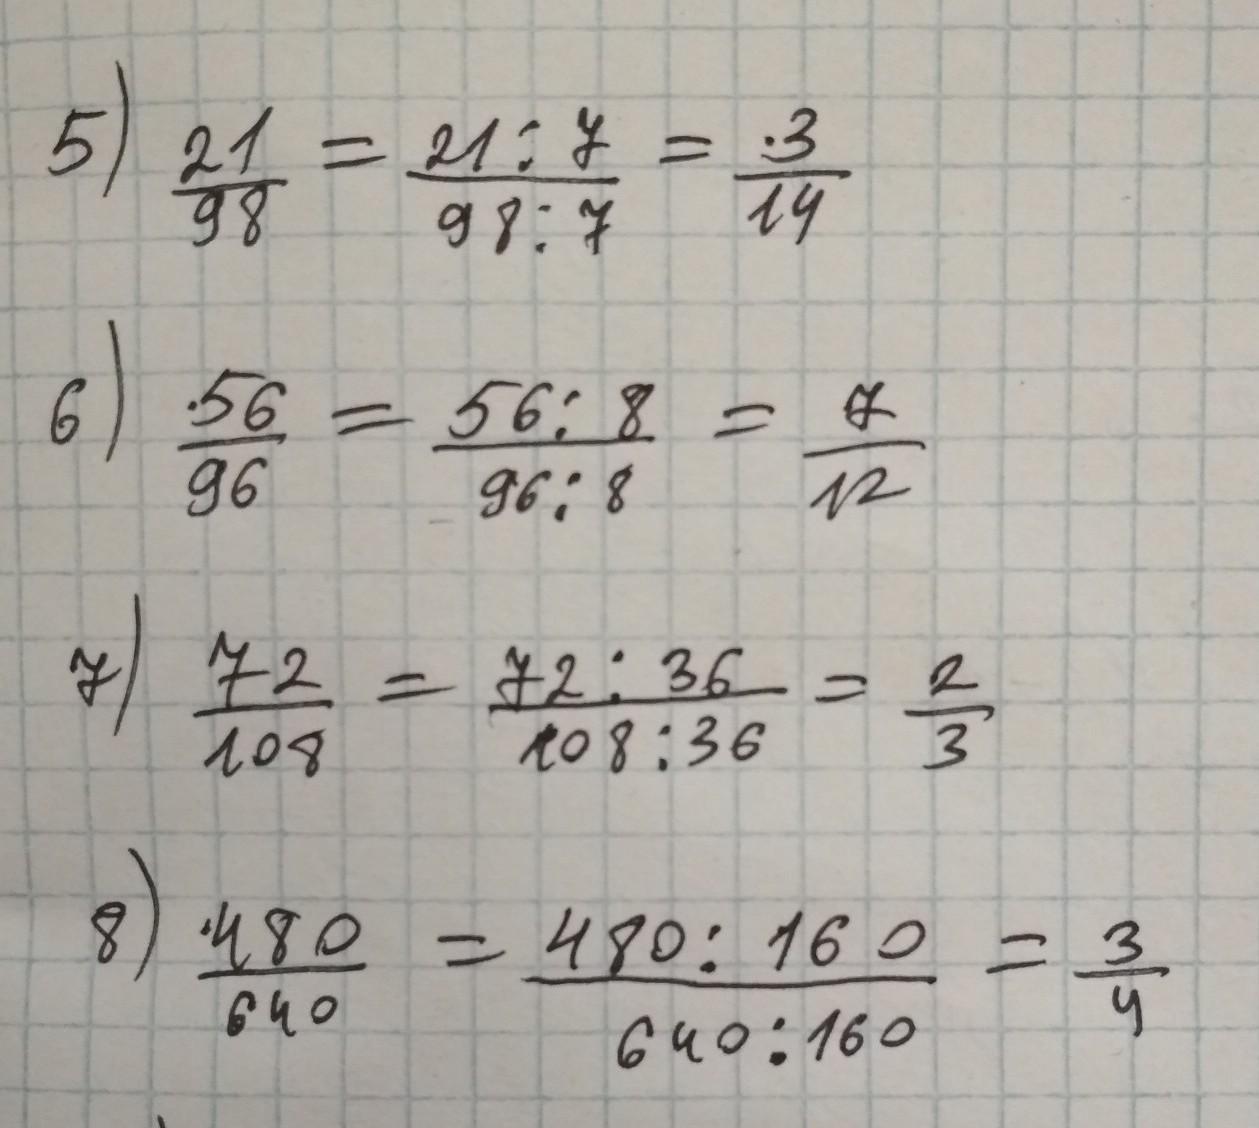 5) 21/98 = 21:7/98:7 = 3/14
6) 56/96 = 56:8/96:8 = 7/12
7) 72/108 = 72:36/108:36 = 2/3
8) 480/640 = 480:160/640:160 = 3/4